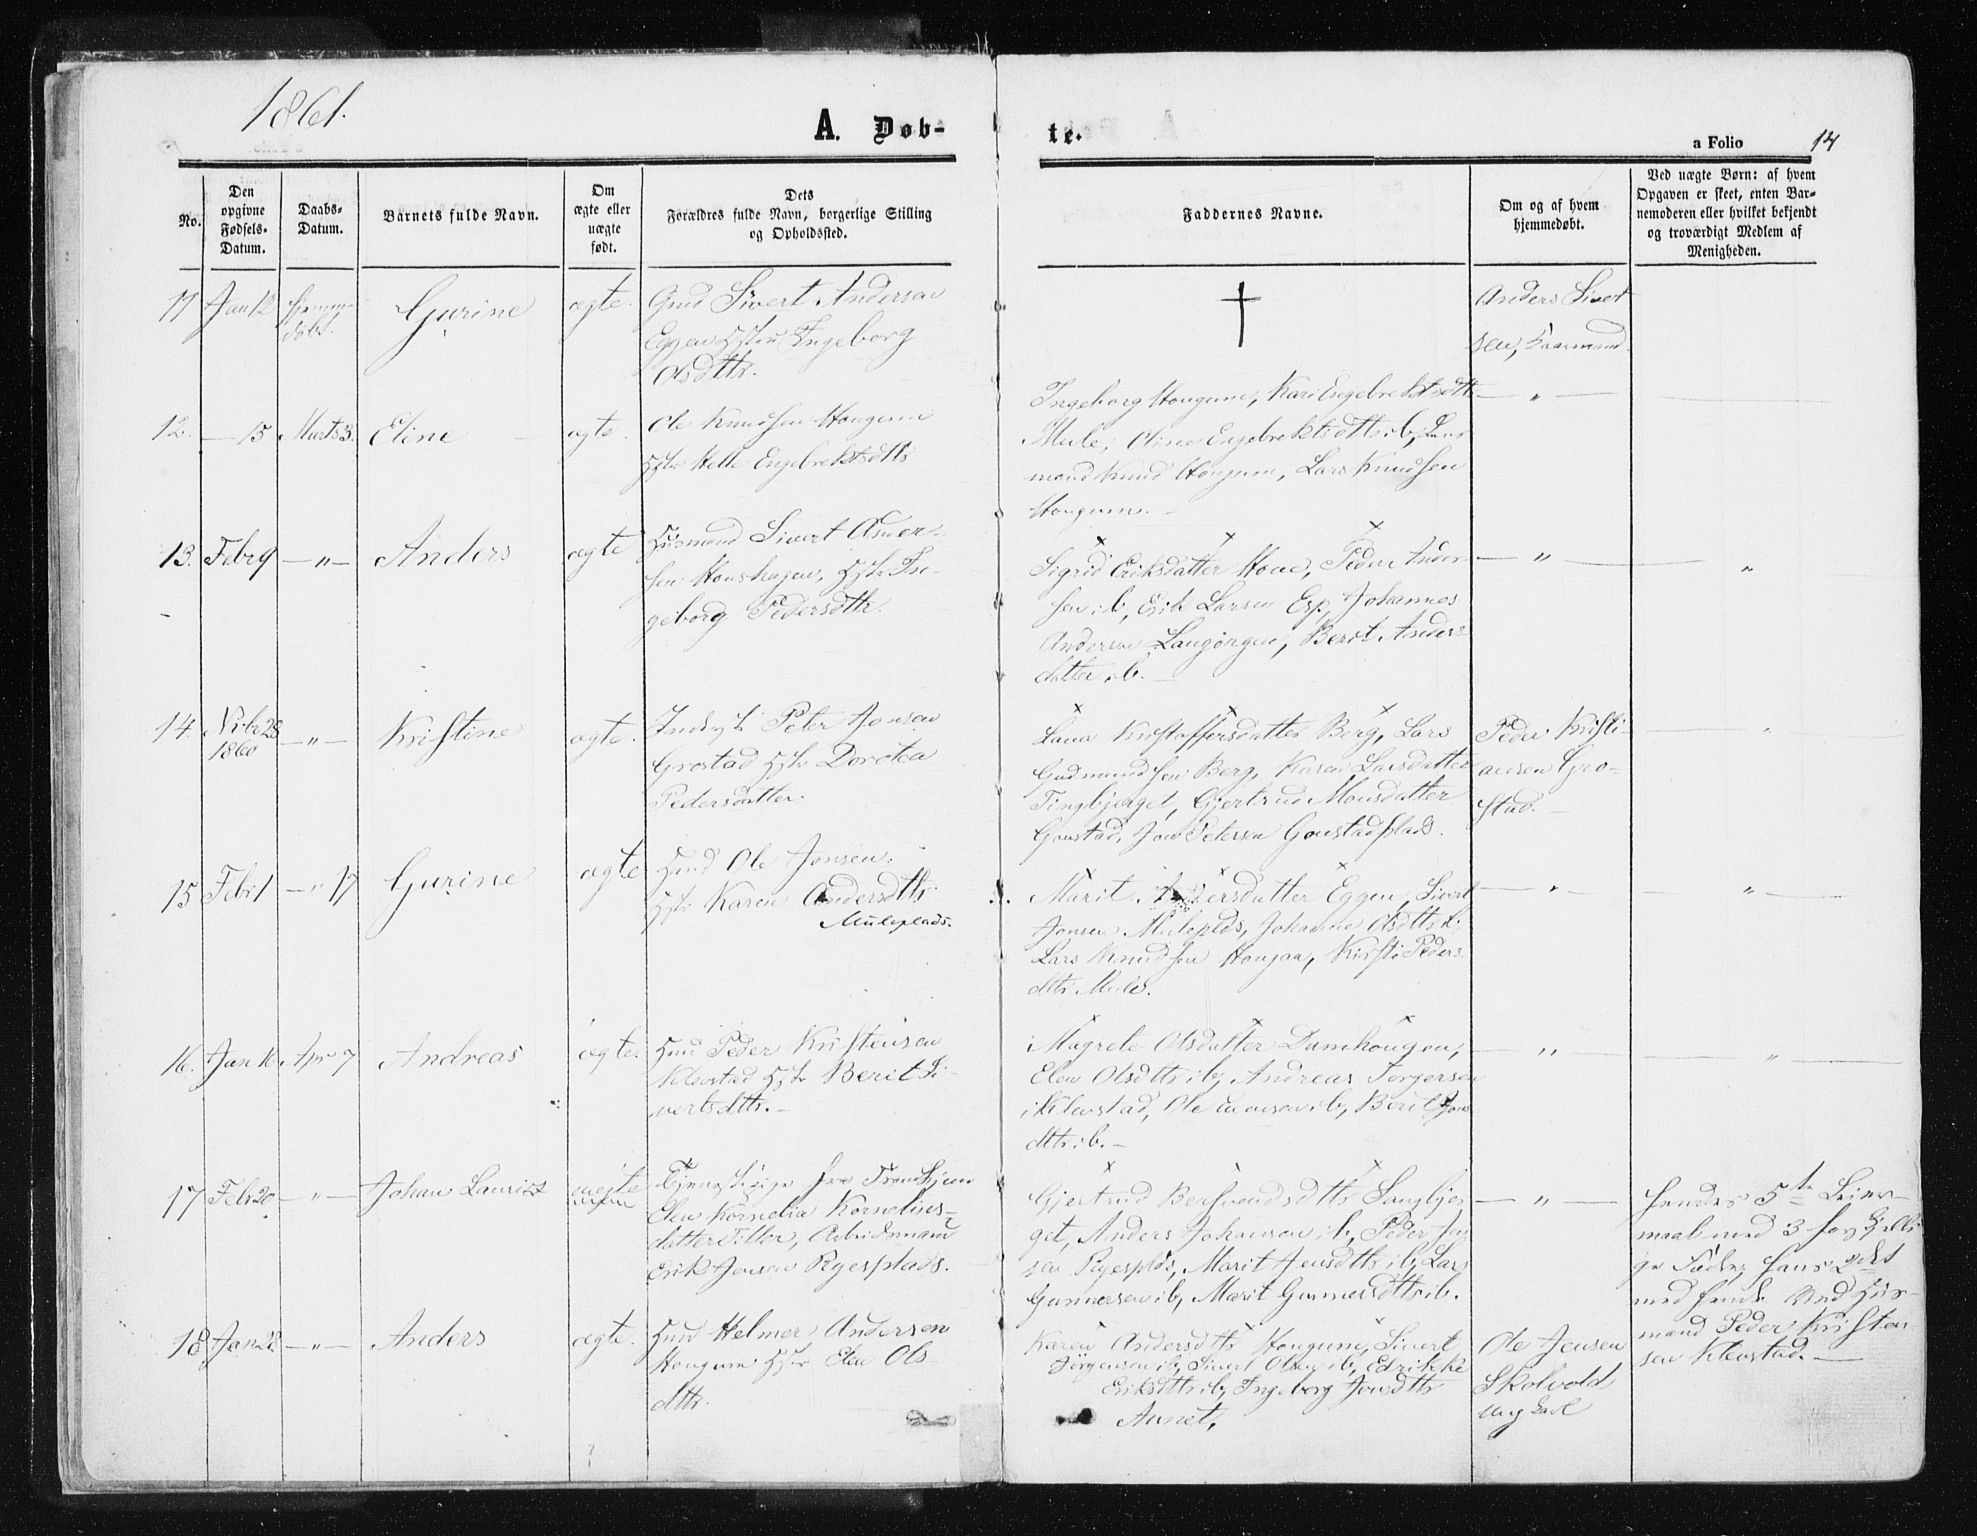 1861.
A. Døb-
te.
a Folio 14
No.
Den opgivne Fødsels-Datum.
Daabs-Datum.
Barnets fulde Navn.
Om ægte eller uægte født.
Dets Forældres fulde Navn, borgerlige Stilling og Opholdssted.
Faddernes Navne.
Om og af hvem hjemmedøbt.
Ved uægte Børn: af hvem Opgaven er skeet, enten Barnemoderen eller hvilket bekjendt og troværdigt Medlem af Menigheden.
11 Jan 12 Hjemmedøbt. Gurine ægte. Gmd Sivert Andersen
Eggen Hstru Ingeborg
Olsdttr.
†
Anders Sivert
sen, Kaarmand.
12. — 15 Marts 3. Eline ægte. Ole Knudsen Hougum
Hstr Helle Engebrektsdttr
Ingeborg Hougum, Kari Engebrektsdttr — „ —
Mule, Oline Engebrektsdttr ib,
mand Knud Hougum, Lars Knudsen
Hougum. —
13. Febr 9 — „ — Anders ægte Husmand Sivert
sen Houshagen, Hstr In-
geborg Pedersdttr.
Sigrid Eriksdatter Hove, Peder Ander- — „ — „
sen ib, Erik Larsen Esp, Johannes
Andersen Langørgen, Berit Anders
datter ib. —
14 Nvbr 28 1860 — „ — Kristine ægte. Indst Peter Jonsen
Grostad Hstr Dorotea
Pedersdatter.
Kristoffersdatter Berg, Lars
Gudmundsen Berg, Karen Larsdatter
Tingbjerget, Gjertrud Monsdatter
Gonstad, Jon Petersen Gonstadplads.
Peder Kristi-
ansen Gro-
stad. —
15 Febr 1 — „ 17 Gurine ægte Husmd Ole Jonsen.
Hstr Karen Andersdttr.
Muleplads.
Marit Andersdatter Eggen, Sivert — „ — „
Jonsen Muleplds, Johanne Olsdttr ib,
Lars Knudsen Hougan, Kirsti Peders
dttr Mule.
16. Jan 16 Apr 7 Andreas ægte. Husmd Peder Kristensen
Klevstad Hstr Berit Si-
vertsdttr. —
Magrete Olsdatter Damhougen, — „ — „
Elen Olsdttr ib, Andreas Torgersen
Klevstad, Ole ib, Berit Jons
dttr ib. —
17 Febr 20 — „ — Johan Lauritz uægte Tjenestepige fra Trondhjem
Elen Kornelia Kornelius-
datter Tiller, Arbeidsmand
Erik Jonsen Ryesplads.
Gjertrud dttr Langbjer- — „ —
get, Anders Johansen ib, Peder Jon
sen Ryesplds, Marit Jensdttr ib, Lars
Gunnersen ib, Marit Gunnersdttr ib.
hendes 5te Leier-
maal med 3 forskjelli
ge Fædre, hans 2det
med hende Ved Hus-
mand Peder Kristen
sen Klevstad. —
18 Jan 28 — „ — Anders ægte. Husmd Helmer Andersen
Hougum Hstr Elen Ols
dttr.
Karen Andersdttr Hougum, Sivert
Jørgensen ib, Sivert Olsen ib, Edrikke
Eriksdttr ib, Ingeborg Jonsdttr
Aunet,
Ole Jensen
Skolvold
Ung Karl